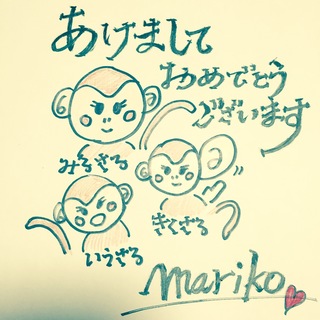 あけまして
おめでとう
ございます
みるざる
きくざる
いうざる
mariko